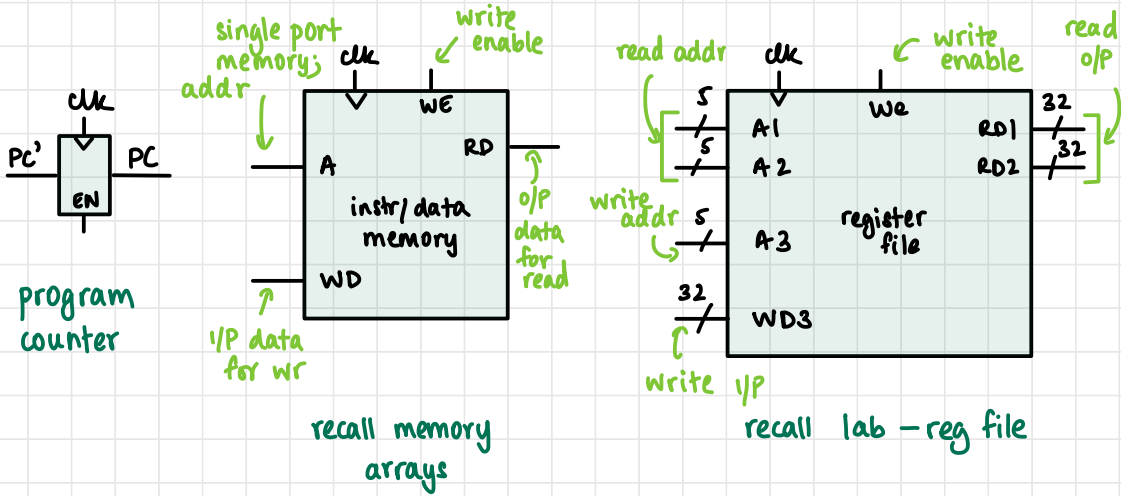 clk
PC'
PC
EN
program
counter
single port
memory;
addr
clk
write
enable
WE
A
RD
instr/data
memory
WD
O/P
data
for
read
I/P data
for wr
recall memory
arrays
read addr
clk
write
enable
read
O/P
We
5
A1
5
A2
write
addr
5
A3
32
WD3
write I/P
register
file
RD1
32
RD2
32
recall lab - reg file